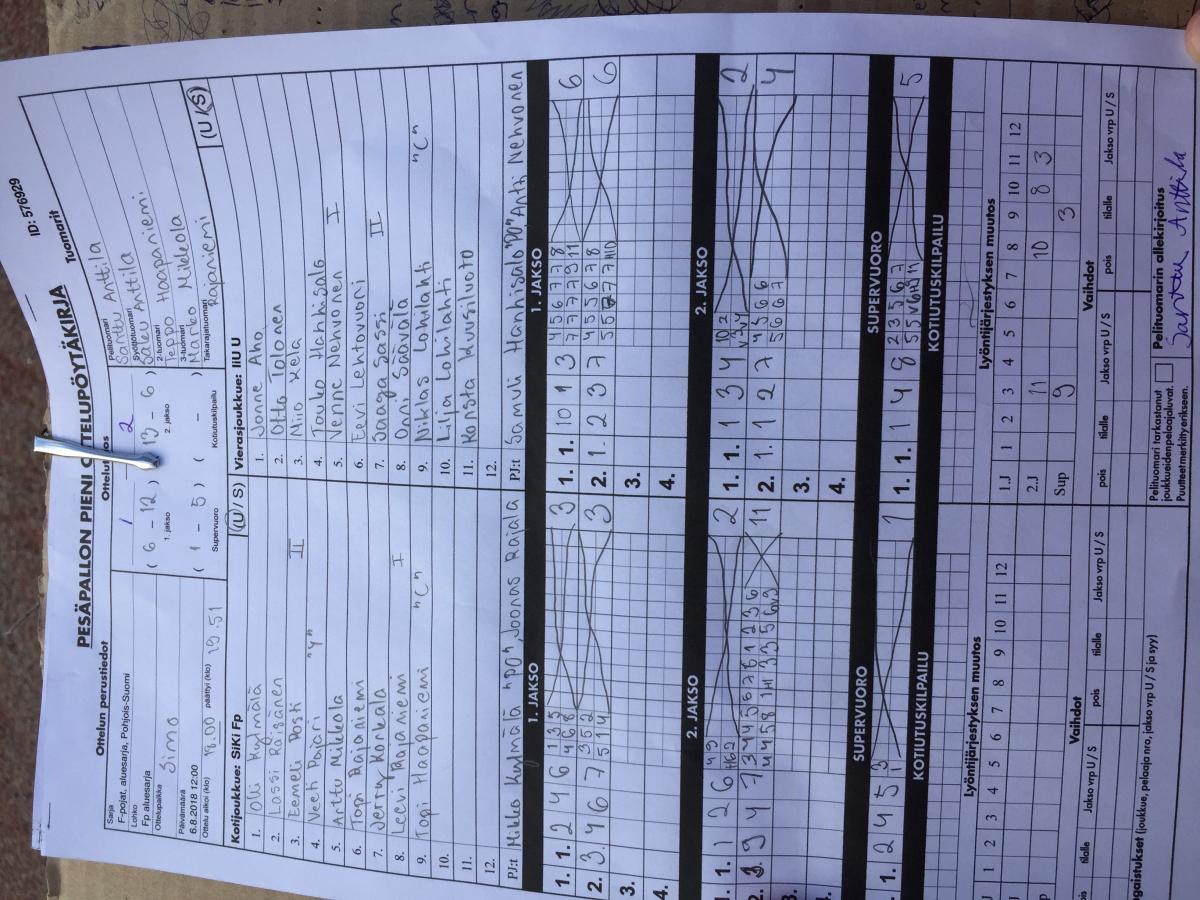 ID: 576929
PESÄPALLON PIENI OTTELUPÖYTÄKIRJA
Ottelun perustiedot
Sarja
F-pojat, aluesarja, Pohjois-Suomi
Lohko
Fp aluesarja
Ottelupaikka
Simo
Päivämäärä
6.8.2018 12:00
Ottelu alkoi (klo) 18.00 päättyi (klo) 19.51
1 - 2
( 6 - 12 ) ( 13 - 6 )
1. jakso 2. jakso
( 1 - 5 ) ( - )
Supervuoro Kotiutuskilpailu
Tuomarit
Pelituomari
Santtu Anttila
Syöttötuomari
Saku Anttila
2-tuomari
Teppo Haapaniemi
3-tuomari
Marko Mikkola
Takarajatuomari
Rajaniemi
Kotijoukkue: SiKi Fp (U / S)
1. Olli Kylmälä
2. Lassi Räisänen
3. Eemeli Posti II
4. Veeti Poiori "V"
5. Arttu Mikkola
6. Topi Rajaniemi
7. Jerry Konkala
8. Leevi Rajaniemi I
9. Topi Haapaniemi "C"
10.
11.
12.
PJ:t Mikko Kylmälä "PO", Joonas Raiala
Vierasjoukkue: IiU U (U / S)
1. Janne Aho
2. Otto Talonen
3. Miio Kela
4. Touko Hanhisalo
5. Verne Nehvonen I
6. Eevi Lehtovuori
7. Saaga Sassi II
8. Onni Saavala
9. Niklas Lohilahti "C"
10. Lilja Lohilahti
11. Konsta Kuusiluoto
12.
PJ:t Samuli Hanhisalo "PO" Antti Nehvonen
1. JAKSO
1. 1. 2 4 6 1 3 5 3
4 6 8
2. 3. 4 6 7 3 5 2 3
5 1 4
3.
4.
1. JAKSO
1. 1. 10 1 3 4 5 6 7 7 8 6
7 7 7 9 11
2. 1. 2 3 7 4 5 5 6 7 8 6
3.
4.
2. JAKSO
1. 1. 1 2 6 2
2. 3. 9 4 7 11
3.
4.
2. JAKSO
1. 1. 1 3 4 2
2. 1. 1 2 7 4 5 6 6 4
5 6 6 7
3.
4.
SUPERVUORO
1. 1. 2 4 5 3 1
1
SUPERVUORO
1. 1. 1 4 8 2 3 5 6 7 5
KOTIUTUSKILPAILU
KOTIUTUSKILPAILU
Lyöntijärjestyksen muutos
1 2 3 4 5 6 7 8 9 10 11 12
Lyöntijärjestyksen muutos
1.J 1 2 3 4 5 6 7 8 9 10 11 12
2.J 11 10 8 3
Sup 9 3
Vaihdot
tilalle Jakso vrp U / S pois tilalle Jakso vrp U / S
Vaihdot
pois tilalle Jakso vrp U / S pois tilalle Jakso vrp U / S
(joukkue, pelaaja nro, jakso vrp U / S ja syy)
Pelituomari tarkastanut
joukkueidenpelaajaluvat.
Puutteetmerkittyerikseen.
Pelituomarin allekirjoitus
Santtu Anttila